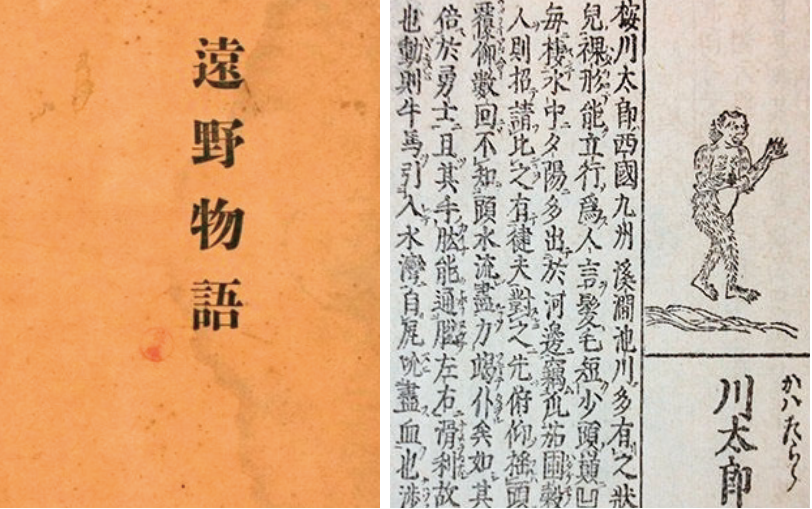 遠野物語
かハたらう
川太郎
按川太郎西國九州溪澗池川多有之狀
兒裸形能立行爲人言髮毛短少頭巔凹
毎棲水中夕陽多出於河邊竊瓜茄圃穀
人則招請比之有健夫對之先俯仰搖頭
覆仰數回不知頭水流盡力竭仆矣如其
倍於勇士且其手肱能通左右滑利故
也動則牛馬引入水灣自尻吮盡血也渉